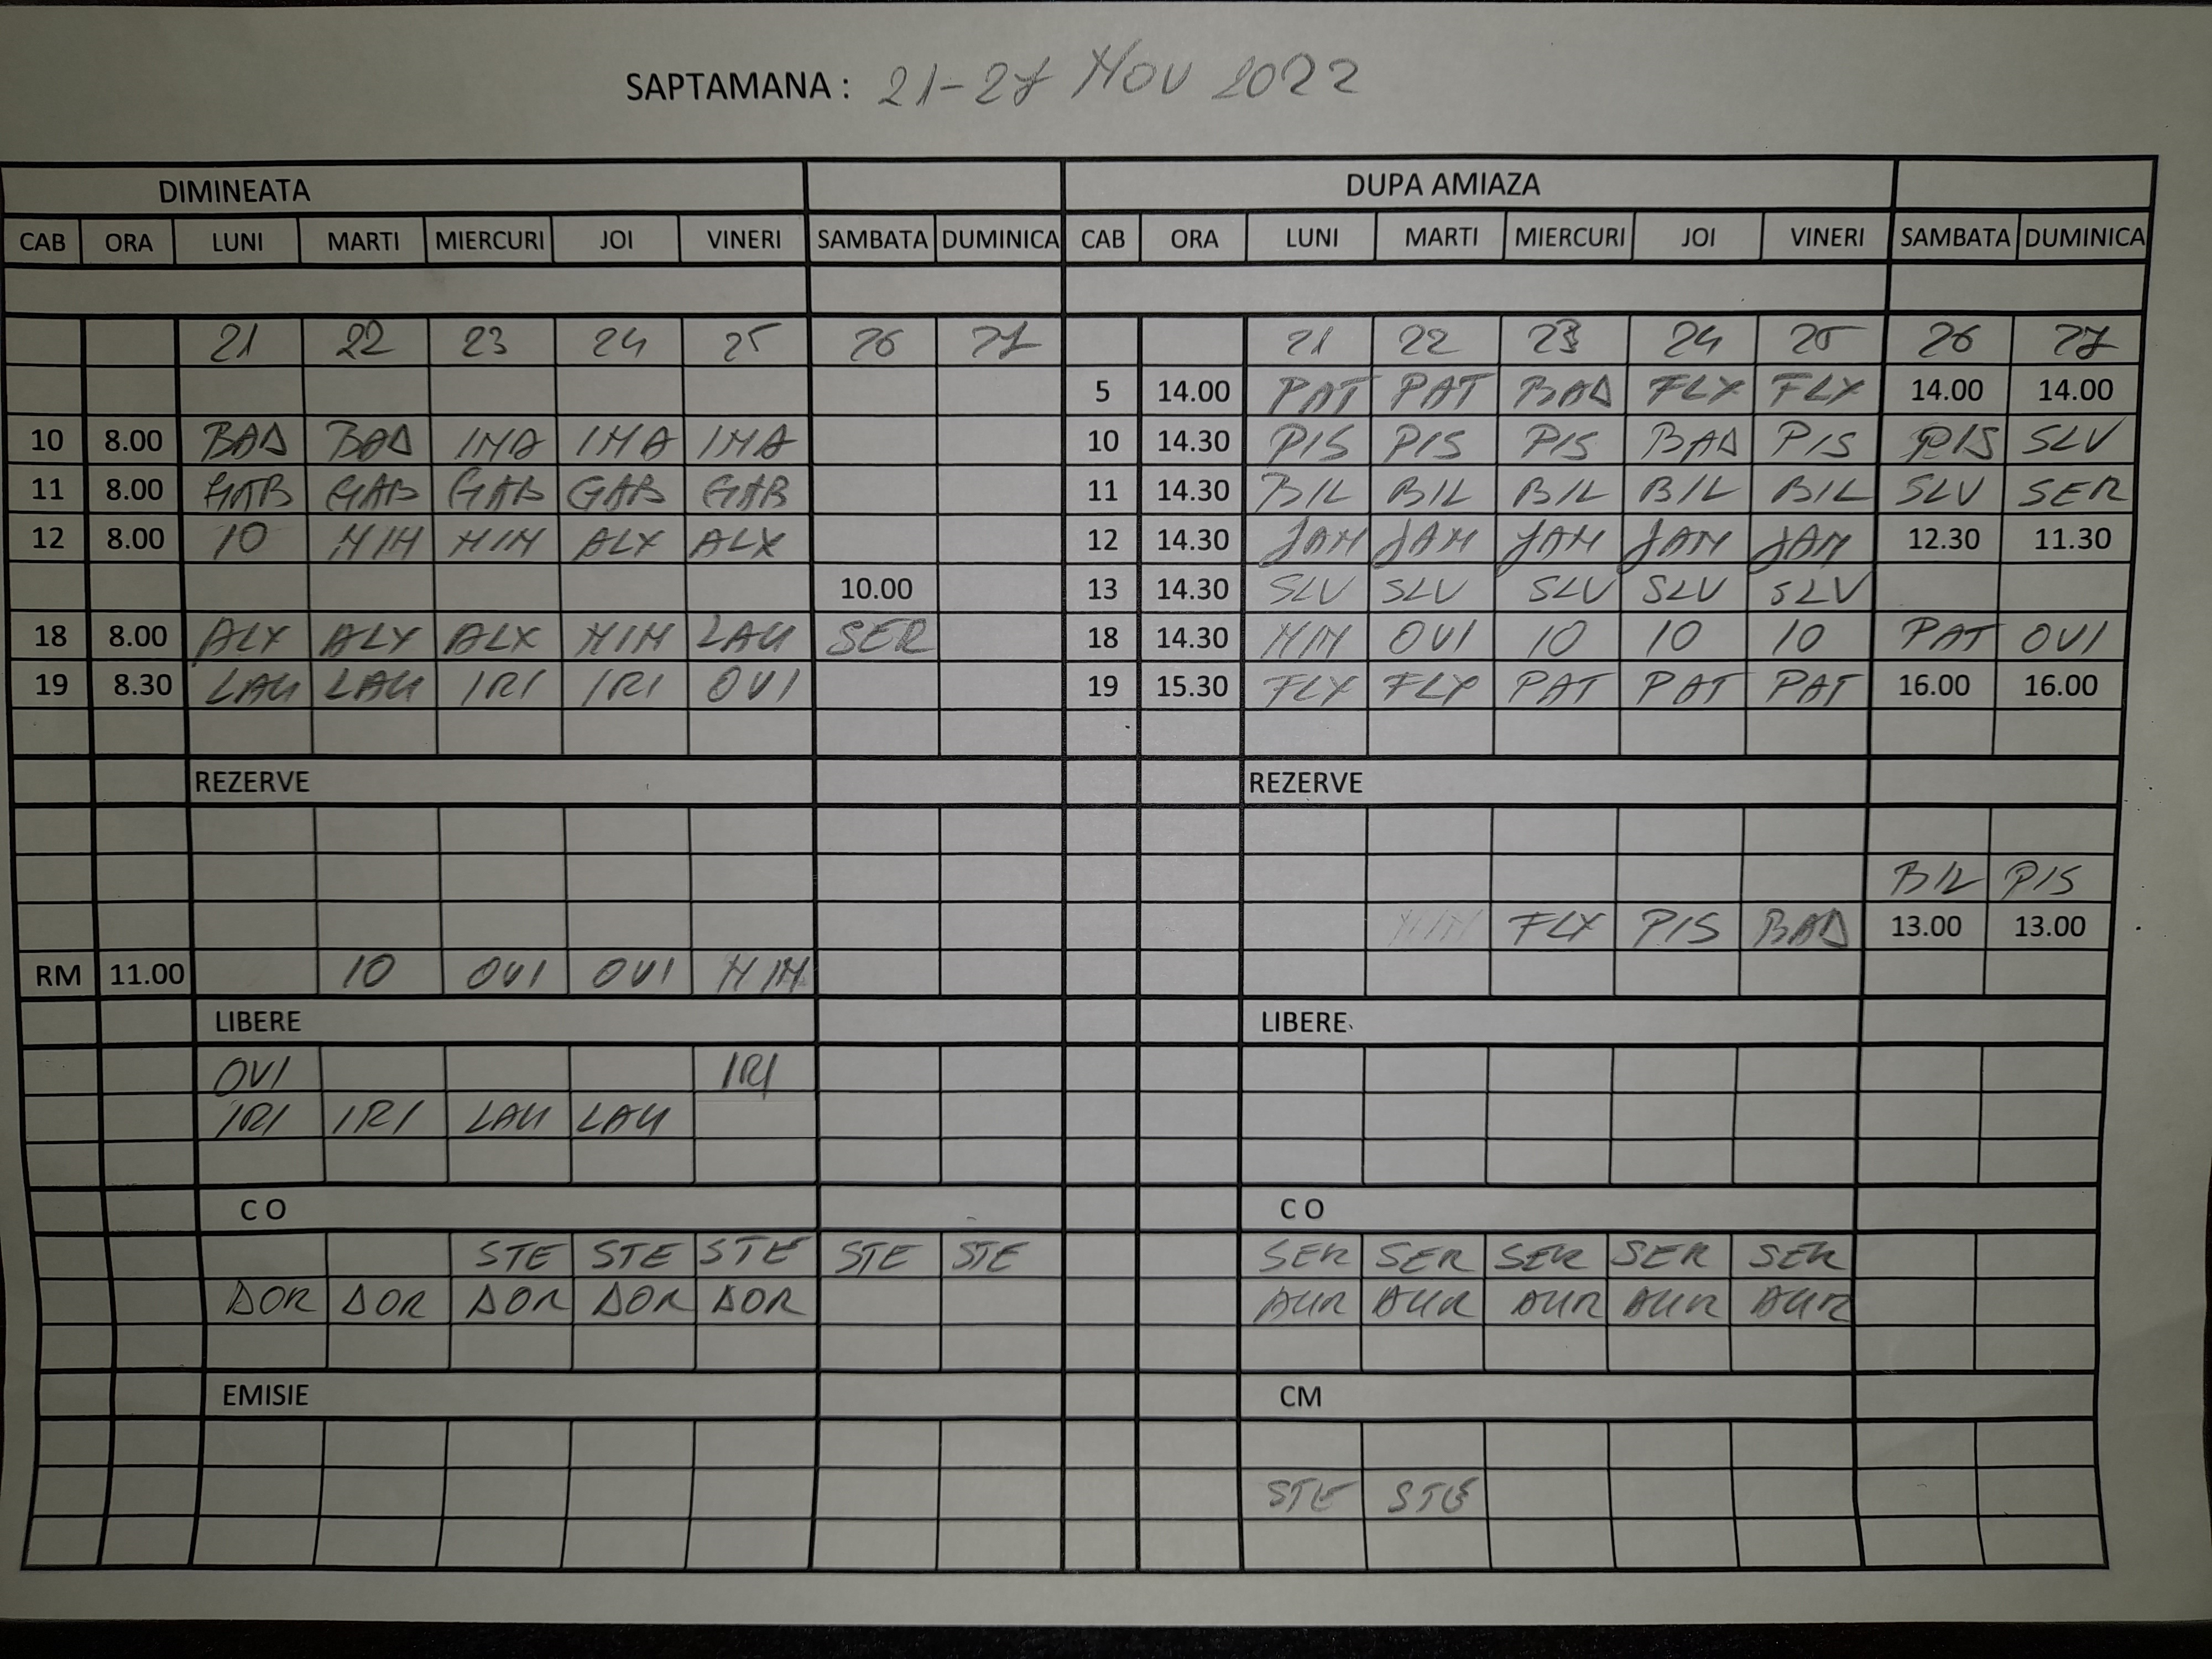 SAPTAMANA : 21-27 NOV 2022
DIMINEATA DUPA AMIAZA
CAB ORA LUNI MARTI MIERCURI JOI VINERI SAMBATA DUMINICA CAB ORA LUNI MARTI MIERCURI JOI VINERI SAMBATA DUMINICA
21 22 23 24 25 26 27 21 22 23 24 25 26 27
5 14.00 PAT PAT BAD FLX FLX 14.00 14.00
10 8.00 BAD BAD IMA IMA IMA 10 14.30 PIS PIS PIS BAD PIS PIS SLV
11 8.00 GAB GAB GAB GAB GAB 11 14.30 BIL BIL BIL BIL BIL SLV SER
12 8.00 IO MIM MIM ALX ALX 12 14.30 JAN JAN JAN JAN JAN 12.30 11.30
10.00 13 14.30 SLV SLV SLV SLV SLV
18 8.00 ALX ALX ALX MIM LAU SER 18 14.30 MIM OVI IO IO IO PAT OVI
19 8.30 LAU LAU IRI IRI OVI 19 15.30 FLX FLX PAT PAT PAT 16.00 16.00
REZERVE REZERVE
BIL PIS
FLX PIS BAD 13.00 13.00
RM 11.00 IO OVI OVI MIM
LIBERE LIBERE
OVI IRI
IRI IRI LAU LAU
C O C O
STE STE STE STE STE SER SER SER SER SER
DOR DOR DOR DOR DOR AUR AUR AUR AUR AUR
EMISIE CM
STE STE